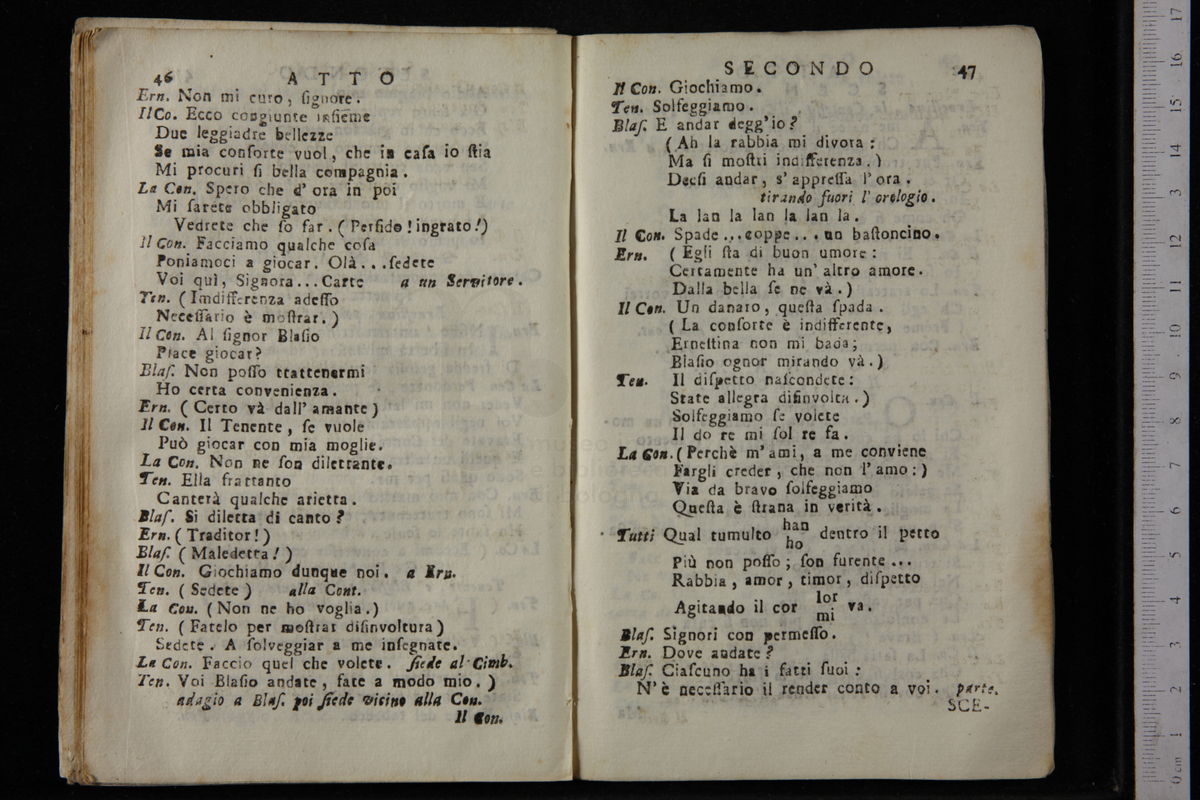 46 ATTO
Ern. Non mi curo, ſignore.
Il Co. Ecco congiunte inſieme
Due leggiadre bellezze
Se mia conſorte vuol, che in caſa io ſtia
Mi procuri ſi bella compagnia.
La Con. Spero che d' ora in poi
Mi ſarete obbligato
Vedrete che ſo far. (Perfido! ingrato!)
Il Con. Facciamo qualche coſa
Poniamoci a giocar. Olà...ſedete
Voi quì, Signora...Carte a un Servitore.
Ten. (Imdifferenza adeſſo
Neceſſario è moſtrar.)
Il Con. Al ſignor Blaſio
Piace giocar?
Blaſ. Non poſſo trattenermi
Ho certa convenienza.
Ern. (Certo và dall' amante)
Il Con. Il Tenente, ſe vuole
Può giocar con mia moglie.
La Con. Non ne ſon dilettante.
Ten. Ella frattanto
Canterà qualche arietta.
Blaſ. Si diletta di canto?
Ern. (Traditor!)
Blaſ. (Maledetta!)
Il Con. Giochiamo dunque noi. a Ern.
Ten. (Sedete) alla Cont.
La Con. (Non ne ho voglia.)
Ten. (Fatelo per moſtrar diſinvoltura)
Sedete. A ſolveggiar a me inſegnate.
La Con. Faccio quel che volete. ſiede al Cimb.
Ten. Voi Blaſio andate, fate a modo mio.)
adagio a Blaſ. poi ſiede vicino alla Con.
Il Con.
SECONDO 47
Il Con. Giochiamo.
Ten. Solfeggiamo.
Blaſ. E andar degg'io?
(Ah la rabbia mi divora:
Ma ſi moſtri indifferenza.)
Deeſi andar, s' appreſſa l' ora.
tirando fuori l' orologio.
La lan la lan la lan la.
Il Con. Spade...coppe... un baſtoncino.
Ern. (Egli ſta di buon umore:
Certamente ha un' altro amore.
Dalla bella ſe ne và.)
Il Con. Un danaro, queſta ſpada.
(La conſorte è indifferente,
Erneſtina non mi bada;
Blaſio ognor mirando và.)
Ten. Il diſpetto naſcondete:
State allegra diſinvolta.)
Solfeggiamo ſe volete
Il do re mi ſol re fa.
La Con. (Perchè m' ami, a me conviene
Fargli creder, che non l' amo:)
Via da bravo ſolfeggiamo
Queſta è ſtrana in verità.
Tutti Qual tumulto han dentro il petto
ho
Più non poſſo; ſon furente...
Rabbia, amor, timor, diſpetto
Agitando il cor lor va.
mi
Blaſ. Signori con permeſſo.
Ern. Dove andate?
Blaſ. Ciaſcuno ha i fatti ſuoi:
N' è neceſſario il render conto a voi. parte.
SCE-